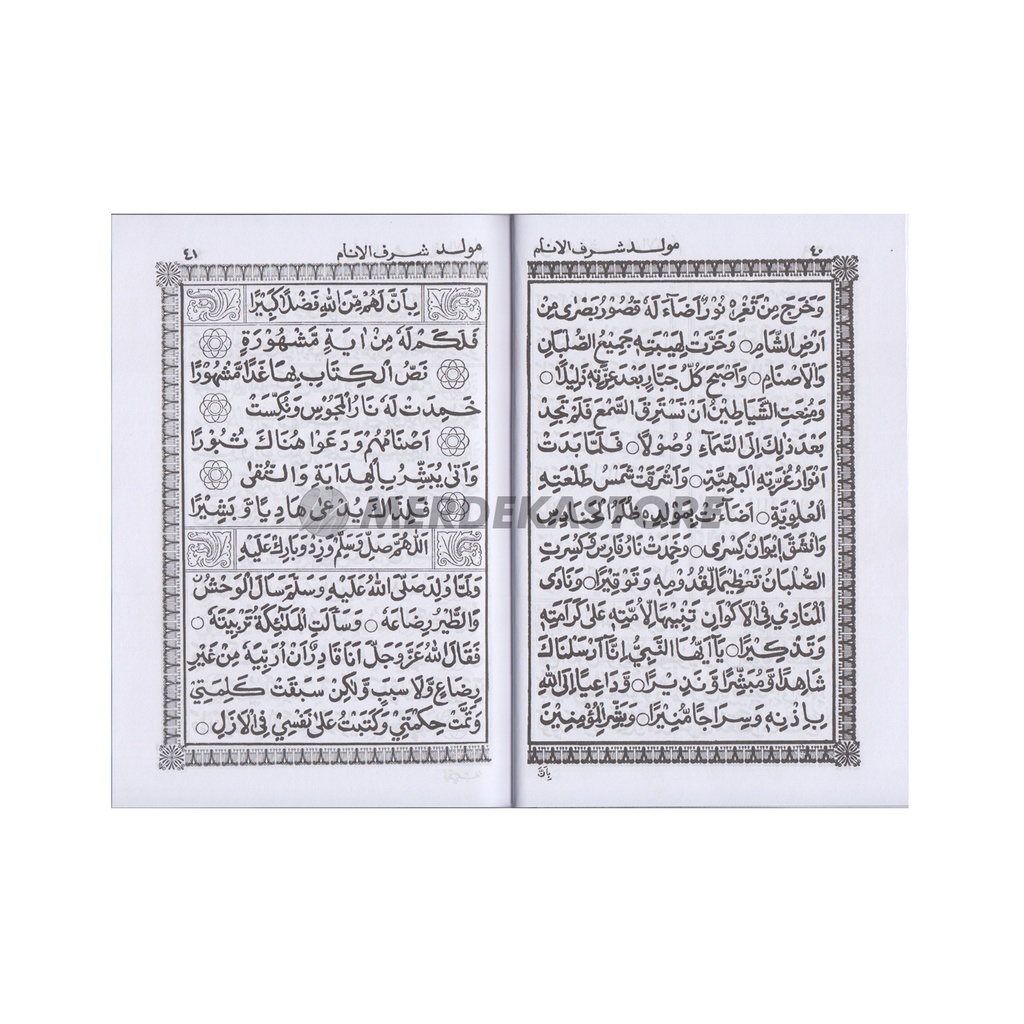 ٤٠ مولد شرف الانام
وَخَرَجَ مِنْ ثَغْرِهِ نُوْرٌ اَضَآءَ لَهٗ قُصُوْرُ بَصْرٰى مِنْ
اَرْضِ الشَّامِ ○ وَخَرَّتْ لِهَيْبَتِهٖ جَمِيْعُ الصُّلْبَانِ
وَالْاَصْنَامِ ○ وَاَصْبَحَ كُلُّ جَبَّارٍ بَعْدَ عِزَّتِهٖ ذَلِيْلًا ○
وَمُنِعَتِ الشَّيَاطِيْنُ اَنْ تَسْتَرِقَ السَّمْعَ فَلَمْ تَجِدْ
بَعْدَ ذٰلِكَ اِلَى السَّمَآءِ وُصُوْلًا ○ فَلَمَّا بَدَتْ
اَنْوَارُ غُرَّتِهِ الْبَهِيَّةِ ○ وَاَشْرَقَتْ شَمْسُ طَلْعَتِهِ
الْعُلْوِيَّةِ ○ اَضَآءَتْ بِمَوْلِدِهٖ ظُلَمُ الْحَنَادِسِ
وَانْشَقَّ اِيْوَانُ كِسْرٰى ○ وَخَمِدَتْ نَارُ فَارِسَ وَكُسِرَتِ
الصُّلْبَانُ تَعْظِيْمًا لِّقُدُوْمِهٖ وَتَوْقِيْرًا ○ وَنَادَى
الْمُنَادِيْ فِى الْاَكْوَانِ تَنْبِيْهًا لِاُمَّتِهٖ عَلٰى كَرَامَتِهٖ
وَتَذْكِيْرًا ○ يَآ اَيُّهَا النَّبِيُّ اِنَّا اَرْسَلْنَاكَ
شَاهِدًا وَّمُبَشِّرًا وَّنَذِيْرًا ○ وَّدَاعِيًا اِلَى اللهِ
بِاِذْنِهٖ وَسِرَاجًا مُّنِيْرًا ○ وَبَشِّرِ الْمُؤْمِنِيْنَ
بِاَنَّ
مولد شرف الانام ٤١
بِاَنَّ لَهُمْ مِنَ اللهِ فَضْلًا كَبِيْرًا
فَلَكَمْ لَهٗ مِنْ اٰيَةٍ مَّشْهُوْرَةٍ
نَصُّ الْكِتَابِ بِهَا غَدًا مَّشْهُوْرًا
خَمِدَتْ لَهٗ نَارُ الْمَجُوْسِ وَنُكِّسَتْ
اَصْنَامُهُمْ وَدَعَوْا هُنَاكَ ثُبُوْرًا
وَاَتٰى يُبَشِّرُ بِالْهِدَايَةِ وَالتُّقٰى
فَلِذَاكَ يُدْعٰى هَادِيًا وَّبَشِيْرًا
اَللّٰهُمَّ صَلِّ وَسَلِّمْ وَزِدْ وَبَارِكْ عَلَيْهِ
وَلَمَّا وُلِدَ صَلَّى اللهُ عَلَيْهِ وَسَلَّمَ سَاَلَ الْوَحْشُ
وَالطَّيْرُ رِضَاعَهٗ ○ وَسَاَلَتِ الْمَلَآئِكَةُ تَرْبِيَتَهٗ ○
فَقَالَ اللهُ عَزَّ وَجَلَّ اَنَا قَادِرٌ اَنْ اُرَبِّيَهٗ مِنْ غَيْرِ
رِضَاعٍ وَّلَا سَبَبٍ وَّلٰكِنْ سَبَقَتْ كَلِمَتِيْ
وَتَمَّتْ حِكْمَتِيْ وَكَتَبْتُ عَلٰى نَفْسِيْ فِى الْاَزَلِ ○
MERDEKASTORE